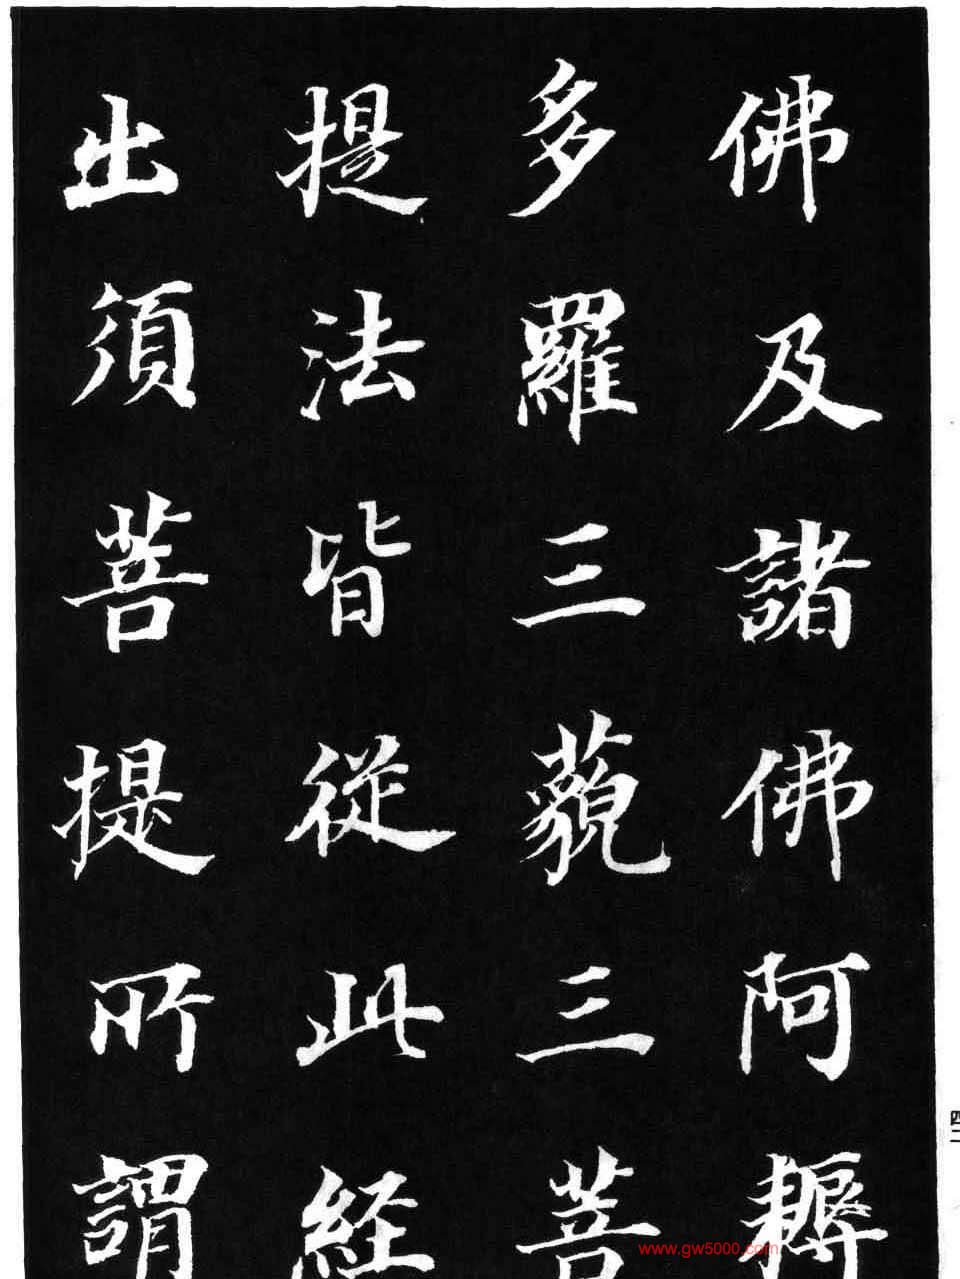 佛及諸佛阿耨
多羅三藐三菩
提法皆從此經
出須菩提所謂
四二
www.gw5000.com